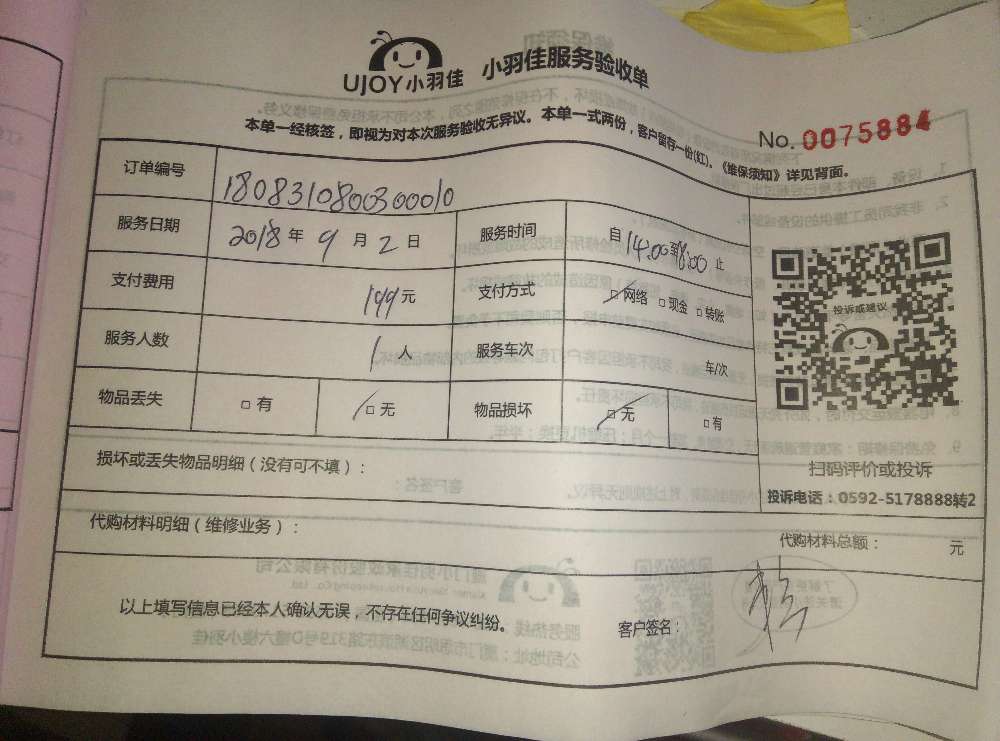 UJOY小羽佳 小羽佳服务验收单
本单一经核签，即视为对本次服务验收无异议。本单一式两份，客户留存一份(红)。《维保须知》详见背面。
No. 0075884
订单编号 1808310800300010
服务日期 2018 年 9 月 2 日 服务时间 自 14:00 至 18:00 止
支付费用 199 元 支付方式 □ 网络 □ 现金 □ 转账
服务人数 1 人 服务车次 车/次
物品丢失 □ 有 □ 无 物品损坏 □ 无 □ 有
投诉或建议
扫码评价或投诉
投诉电话：0592-5178888转2
损坏或丢失物品明细（没有可不填）：
代购材料明细（维修业务）：
代购材料总额： 元
以上填写信息已经本人确认无误，不存在任何争议纠纷。
客户签名：